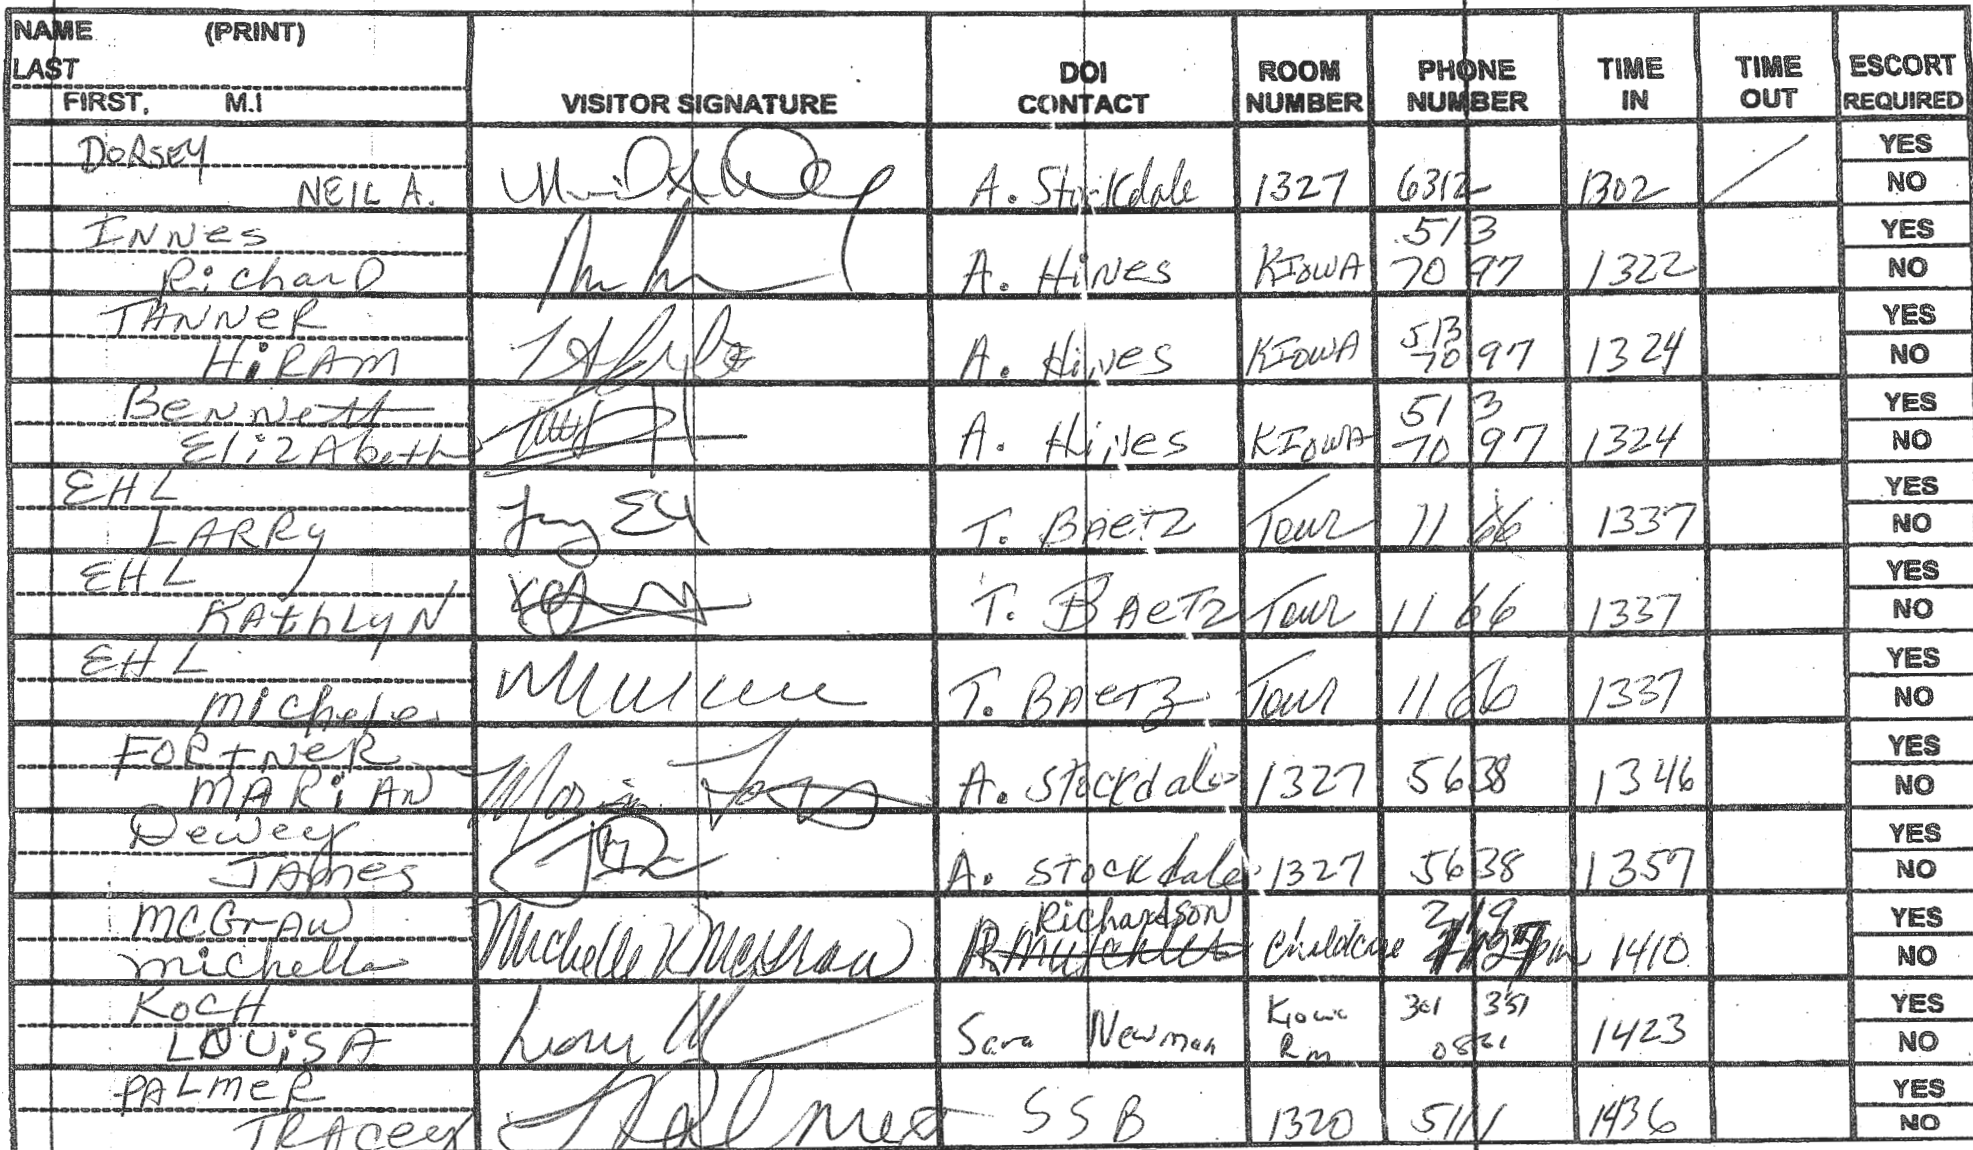 NAME (PRINT)
LAST
FIRST, M.I
VISITOR SIGNATURE
DOI CONTACT
ROOM NUMBER
PHONE NUMBER
TIME IN
TIME OUT
ESCORT REQUIRED
DORSEY
NEIL A. A. Stockdale 1327 6312 1302
YES
NO
INNes
RicharD A. HiNes KIowA 513 7097 1322
YES
NO
TANNeR
HiRAM A. HiNes KIowA 513 7097 1324
YES
NO
BeNNett
ElizAbeth A. HiNes KIowA 513 7097 1324
YES
NO
EHL
LARRy T. BAetz Tour 1166 1337
YES
NO
EHL
KAthLyN T. BAetz Tour 1166 1337
YES
NO
EHL
Michele T. BAetz Tour 1166 1337
YES
NO
FORtNeR
MARiAN A. Stockdale 1327 5638 1346
YES
NO
Dewey
JAmes A. Stockdale 1357 5638 1357
YES
NO
McGrAw
Michelle Michelle K McGraw Richardson Childcare 219 1410
YES
NO
KocH
LOUiSA Sara Newman Kiowa Rm 301 351 1423
YES
NO
PALmeR
TRAcey SSB 1320 5111 1436
YES
NO